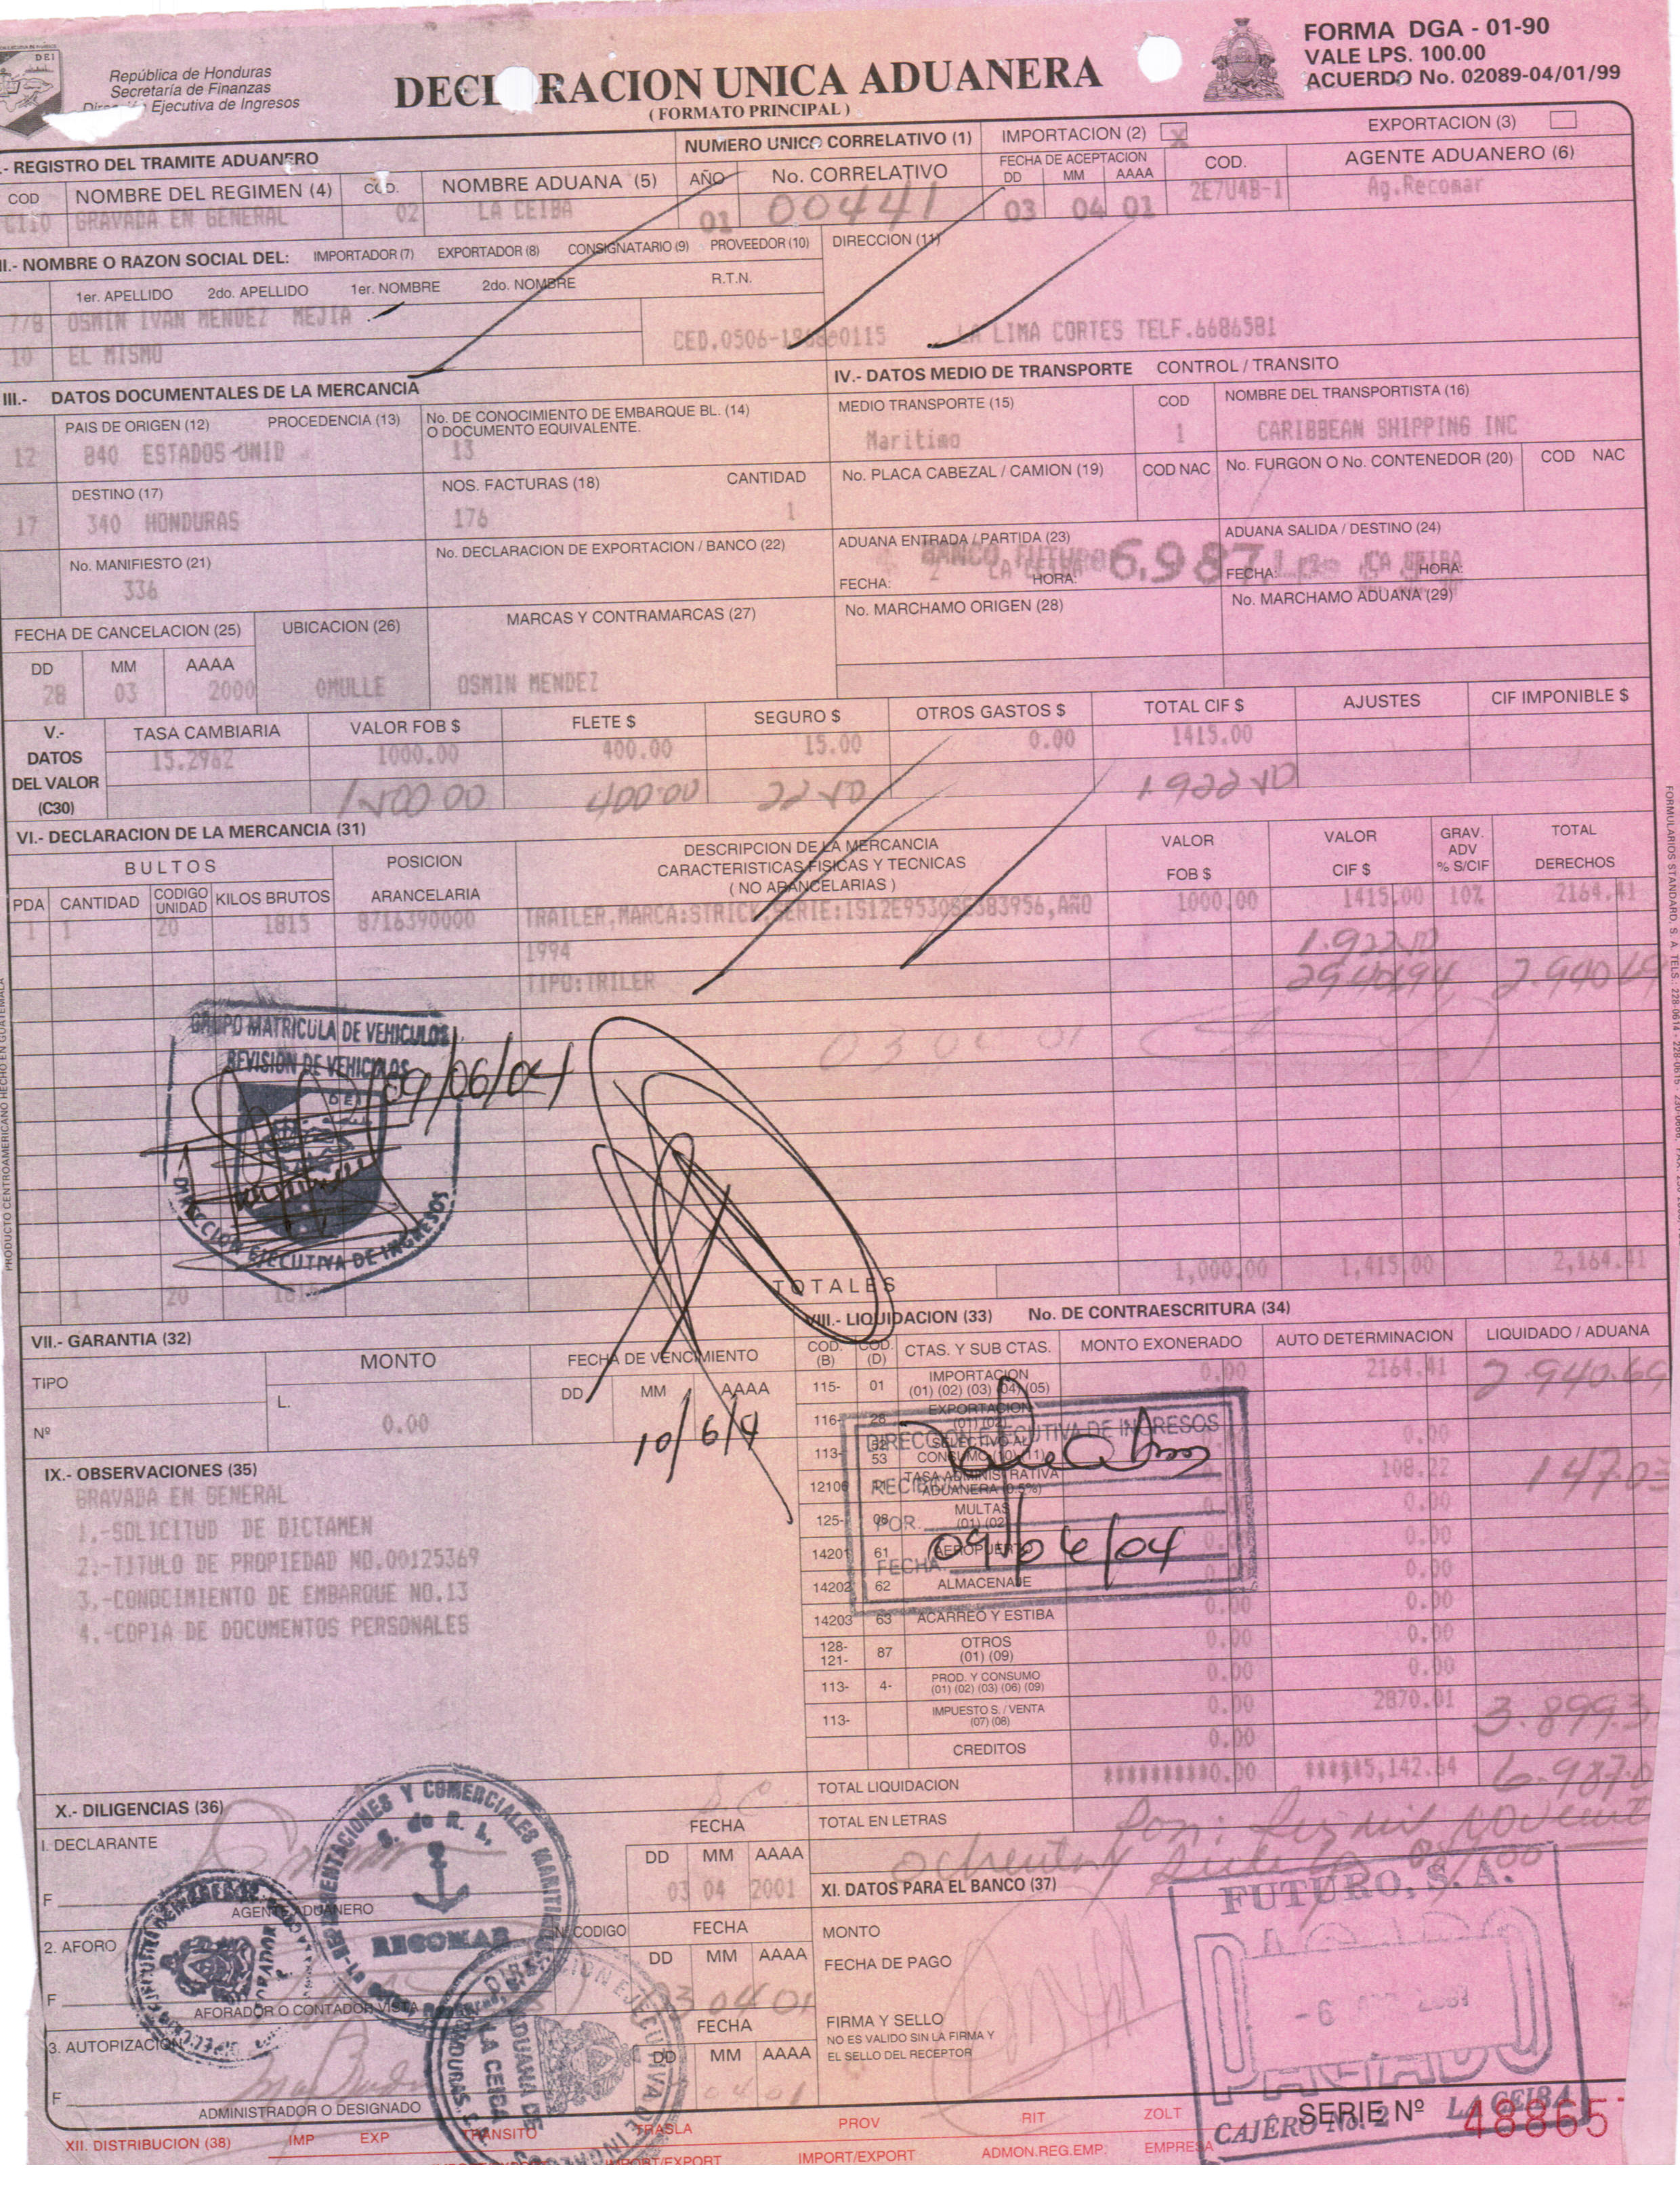 República de Honduras
Secretaría de Finanzas
Ejecutiva de Ingresos
DEI
DECL RACION UNICA ADUANERA
( FORMATO PRINCIPAL )
FORMA DGA - 01-90
VALE LPS. 100.00
ACUERDO No. 02089-04/01/99
.- REGISTRO DEL TRAMITE ADUANERO
NUMERO UNICO CORRELATIVO (1)
IMPORTACION (2) X
EXPORTACION (3)
COD NOMBRE DEL REGIMEN (4) COD. NOMBRE ADUANA (5) AÑO No. CORRELATIVO
FECHA DE ACEPTACION
DD MM AAAA
COD. AGENTE ADUANERO (6)
GRAVADA EN GENERAL 02 LA CEIBA 01 00441 03 04 01 2E7U4B-1 Ag.Recomar
II.- NOMBRE O RAZON SOCIAL DEL: IMPORTADOR (7) EXPORTADOR (8) CONSIGNATARIO (9) PROVEEDOR (10) DIRECCION (11)
1er. APELLIDO 2do. APELLIDO 1er. NOMBRE 2do. NOMBRE R.T.N.
7/8 OSMIN IVAN MENDEZ MEJIA
10 EL MISMO
LA LIMA CORTES TELF.6686581
III.- DATOS DOCUMENTALES DE LA MERCANCIA
IV.- DATOS MEDIO DE TRANSPORTE CONTROL / TRANSITO
PAIS DE ORIGEN (12) PROCEDENCIA (13)
No. DE CONOCIMIENTO DE EMBARQUE BL. (14)
O DOCUMENTO EQUIVALENTE.
MEDIO TRANSPORTE (15) COD NOMBRE DEL TRANSPORTISTA (16)
12 840 ESTADOS UNID 13 Maritimo 1 CARIBBEAN SHIPPING INC
DESTINO (17) NOS. FACTURAS (18) CANTIDAD
No. PLACA CABEZAL / CAMION (19) COD NAC No. FURGON O No. CONTENEDOR (20) COD NAC
17 340 HONDURAS 176 1
No. MANIFIESTO (21) No. DECLARACION DE EXPORTACION / BANCO (22)
ADUANA ENTRADA / PARTIDA (23) ADUANA SALIDA / DESTINO (24)
336
BANCO FUTURO 6,987
2 LA CEIBA LA CEIBA
FECHA: HORA: FECHA: HORA:
FECHA DE CANCELACION (25) UBICACION (26) MARCAS Y CONTRAMARCAS (27)
No. MARCHAMO ORIGEN (28) No. MARCHAMO ADUANA (29)
DD MM AAAA
28 03 2000 OMULLE OSMIN MENDEZ
V.-
DATOS
DEL VALOR
(C30)
TASA CAMBIARIA VALOR FOB $ FLETE $ SEGURO $ OTROS GASTOS $ TOTAL CIF $ AJUSTES CIF IMPONIBLE $
15.2962 1000.00 400.00 15.00 0.00 1415.00
400.00
VI.- DECLARACION DE LA MERCANCIA (31)
BULTOS
POSICION
ARANCELARIA
DESCRIPCION DE LA MERCANCIA
CARACTERISTICAS FISICAS Y TECNICAS
( NO ARANCELARIAS )
VALOR
FOB $
VALOR
CIF $
GRAV.
ADV
% S/CIF
TOTAL
DERECHOS
PDA CANTIDAD CODIGO UNIDAD KILOS BRUTOS
1 1 20 1815 8716390000 TRAILER,MARCA:STRICK,SERIE:1S12E9530SE383956,AÑO 1000.00 1415.00 10% 2164.41
1994
TIPO:TRILER
GRUPO MATRICULA DE VEHICULOS
REVISION DE VEHICULOS
DEI
DIRECCION EJECUTIVA DE INGRESOS
09/06/04
TOTALES 1,000.00 1,415.00 2,164.41
1 20
VII.- GARANTIA (32)
VIII.- LIQUIDACION (33) No. DE CONTRAESCRITURA (34)
TIPO MONTO FECHA DE VENCIMIENTO
Nº L. 0.00
DD MM AAAA
10/6/4
COD. (B) COD. (D) CTAS. Y SUB CTAS. MONTO EXONERADO AUTO DETERMINACION LIQUIDADO / ADUANA
115- 01 IMPORTACION (01) (02) (03) (04) (05) 0.00 2164.41 2.940.69
116- 28 EXPORTACION (01) (02)
113- 52 53 SELECTIVO AL CONSUMO (10) (11) 0.00
12106 TASA ADMINISTRATIVA ADUANERA (0.5%) 108.22 147.03
125- 08 MULTAS (01) (02) 0.00
14201 61 AEROPUERTO 0.00
14202 62 ALMACENAJE 0.00
14203 63 ACARREO Y ESTIBA 0.00 0.00
128- 121- 87 OTROS (01) (09) 0.00 0.00
113- 4- PROD. Y CONSUMO (01) (02) (03) (06) (09) 0.00 0.00
113- IMPUESTO S. / VENTA (07) (08) 0.00 2870.01 3.899.3
CREDITOS 0.00
TOTAL LIQUIDACION **********0.00 ******5,142.64 6.987.0
TOTAL EN LETRAS
DIRECCION EJECUTIVA DE INGRESOS
RECIBIDO
POR.
FECHA 09/06/04
IX.- OBSERVACIONES (35)
GRAVADA EN GENERAL
1.-SOLICITUD DE DICTAMEN
2.-TITULO DE PROPIEDAD NO.00125369
3.-CONOCIMIENTO DE EMBARQUE NO.13
4.-COPIA DE DOCUMENTOS PERSONALES
X.- DILIGENCIAS (36)
I. DECLARANTE
F
AGENTE ADUANERO
FECHA
DD MM AAAA
03 04 2001
XI. DATOS PARA EL BANCO (37)
MONTO
FECHA DE PAGO
FIRMA Y SELLO
NO ES VALIDO SIN LA FIRMA Y
EL SELLO DEL RECEPTOR
2. AFORO
Nº CODIGO
FECHA
DD MM AAAA
03 04 01
F
AFORADOR O CONTADOR VISTA
3. AUTORIZACION
FECHA
DD MM AAAA
04 01
F
ADMINISTRADOR O DESIGNADO
REPRESENTACIONES Y COMERCIALES MARITIMAS
S. de R. L.
RECOMAR
ADUANA DE
LA CEIBA
FUTURO, S. A.
PAGADO
CAJERO No. 2 LA CEIBA
SERIE Nº 48865
XII. DISTRIBUCION (38) IMP EXP TRANSITO TRASLA PROV RIT ZOLT
IMPORT/EXPORT IMPORT/EXPORT ADMON.REG.EMP. EMPRESA
PRODUCTO CENTROAMERICANO HECHO EN GUATEMALA
FORMULARIOS STANDARD, S. A. TELS.: 228-0614